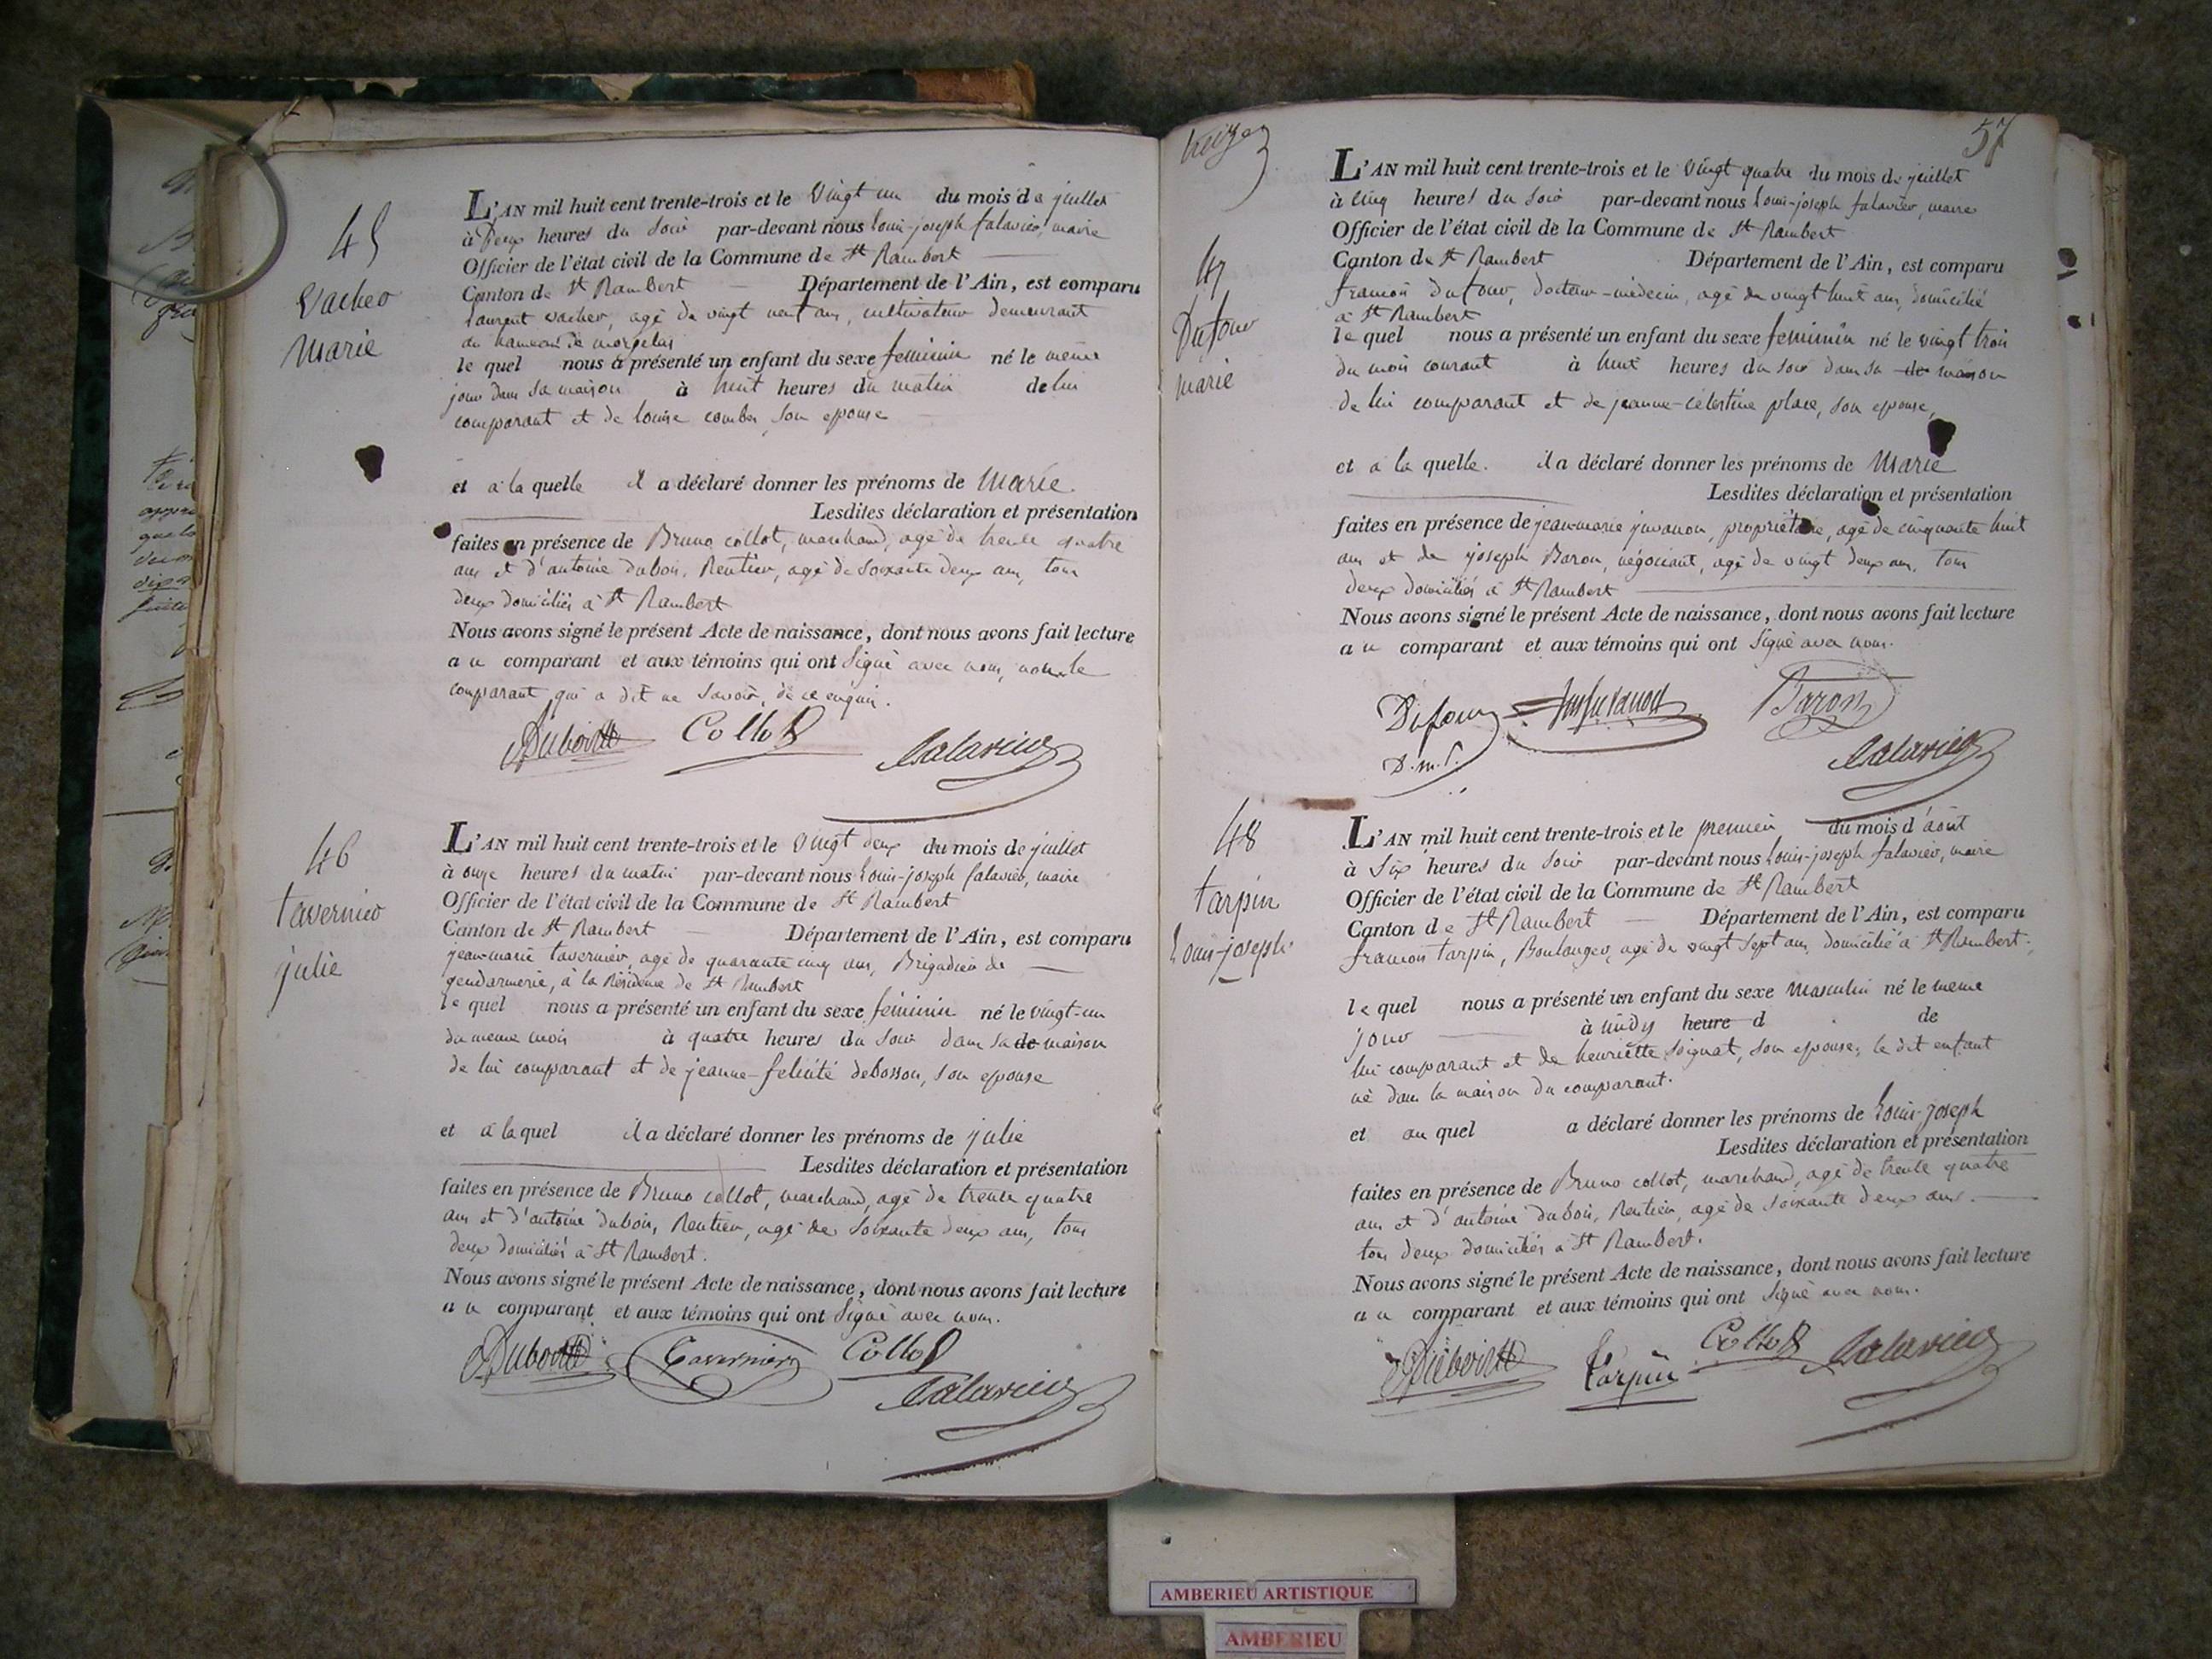 45
Vacher
Marie
L'AN mil huit cent trente-trois et le Vingt un du mois de juillet
à Deux heures du Soir par-devant nous Louis-joseph falavier, maire
Officier de l'état civil de la Commune de St Rambert
Canton de St Rambert Département de l'Ain, est comparu
laurent vacher, agé de vingt neuf ans, cultivateur demeurant
au hameau de morgelas
le quel nous a présenté un enfant du sexe feminin né le même
jour dans sa maison à huit heures du matin de lui
comparant et de louise combes, son epouse
et a la quelle il a déclaré donner les prénoms de Marie.
Lesdites déclaration et présentation
faites en présence de Bruno collot, marchand, agé de trente quatre
ans et d'antoine dubois, Rentier, agé de soixante deux ans, tous
deux domiciliés à St Rambert
Nous avons signé le présent Acte de naissance, dont nous avons fait lecture
au comparant et aux témoins qui ont Signé avec nous, non le
comparant qui a dit ne Savoir, de ce enquis.
Dubois Collot
falavier
46
tavernier
julie
L'AN mil huit cent trente-trois et le Vingt deux du mois de juillet
à onze heures du matin par-devant nous Louis-joseph falavier, maire
Officier de l'état civil de la Commune de St Rambert
Canton de St Rambert Département de l'Ain, est comparu
jean-marie tavernier, agé de quarante cinq ans, Brigadier de
gendarmerie, à la Résidence de St Rambert
le quel nous a présenté un enfant du sexe féminin né le vingt-un
du meme mois à quatre heures du Soir dans sa de maison
de lui comparant et de jeanne-felicité debosson, son epouse
et a laquel il a déclaré donner les prénoms de julie
Lesdites déclaration et présentation
faites en présence de Bruno collot, marchand, agé de trente quatre
ans et d'antoine dubois, Rentier, agé de Soixante deux ans, tous
deux domiciliés à St Rambert.
Nous avons signé le présent Acte de naissance, dont nous avons fait lecture
au comparant et aux témoins qui ont Signé avec nous.
Dubois Tavernier Collot
falavier
57
47
Dufour
marie
L'AN mil huit cent trente-trois et le Vingt quatre du mois de juillet
à Cinq heures du Soir par-devant nous Louis-joseph falavier, maire
Officier de l'état civil de la Commune de St Rambert
Canton de St Rambert Département de l'Ain, est comparu
francois Dufour, docteur-médecin, agé de vingt huit ans, domicilié
à St Rambert
le quel nous a présenté un enfant du sexe feminin né le vingt trois
du mois courant à huit heures du soir dans sa de maison
de lui comparant et de jeanne-célestine place, son epouse,
et a la quelle. il a déclaré donner les prénoms de Marie
Lesdites déclaration et présentation
faites en présence de jean-marie juvanon, propriétaire, agé de cinquante huit
ans et de joseph Baron, négociant, agé de vingt deux ans, tous
deux domiciliés à St Rambert
Nous avons signé le présent Acte de naissance, dont nous avons fait lecture
au comparant et aux témoins qui ont Signé avec nous.
Dufour Juvanon Baron
D.m.
falavier
48
tarpin
Louis-joseph
L'AN mil huit cent trente-trois et le premier du mois d'août
à Six heures du Soir par-devant nous Louis-joseph falavier, maire
Officier de l'état civil de la Commune de St Rambert
Canton de St Rambert Département de l'Ain, est comparu
francois tarpin, Boulanger, agé de vingt sept ans, domicilié à St Rambert.
le quel nous a présenté un enfant du sexe Masculin né le meme
jour à midy heure d de
lui comparant et de henriette Soignat, son epouse; le dit enfant
né dans la maison du comparant.
et au quel a déclaré donner les prénoms de Louis-joseph
Lesdites déclaration et présentation
faites en présence de Bruno collot, marchand, agé de trente quatre
ans et d'antoine dubois, Rentier, agé de Soixante deux ans.
tous deux domiciliés à St Rambert.
Nous avons signé le présent Acte de naissance, dont nous avons fait lecture
au comparant et aux témoins qui ont Signé avec nous.
Dubois Tarpin Collot falavier
AMBERIEU ARTISTIQUE
AMBERIEU